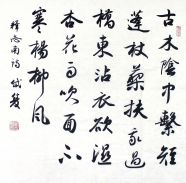 古木陰中繫短
篷杖藜扶我過
橋東沾衣欲濕
杏花雨吹面不
寒楊柳風
釋志南詩